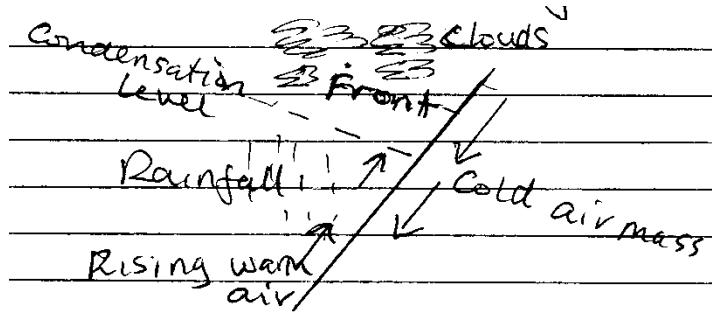 Clouds
Condensation
Level
Front
Rainfall
Cold air mass
Rising warm
air